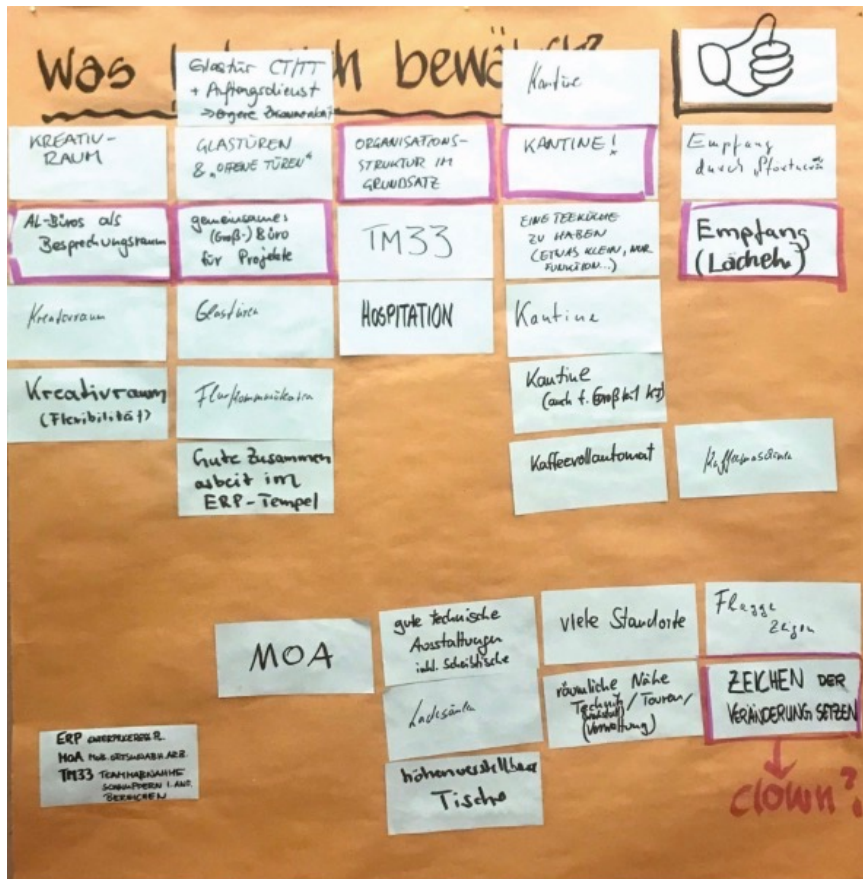 Was
bewährt?
Glastür CT/TT
+ Auftragsdienst
Kantine
KREATIV-
RAUM
GLASTÜREN
& „OFFENE TÜREN“
ORGANISATIONS-
STRUKTUR IM
GRUNDSATZ
KANTINE!
Empfang
durch
AL-Büros als
Besprechungsraum
gemeinsames
(Groß-) Büro
für Projekte
TM33
EINE TEEKÜCHE
ZU HABEN
(ETWAS KLEIN, NUR
FUNKTION...)
Empfang
(Lächeln)
Kreativraum
Glastüren
HOSPITATION
Kantine
Kreativraum
(Flexibilität)
Flurkommunikation
Kantine
(auch f.
Gute Zusammen
arbeit im
ERP-Tempel
Kaffeevollautomat
Kaffeemaschine
MOA
gute technische
Ausstattungen
inkl. Schreibtische
viele Standorte
Flagge
zeigen
Ladesäulen
räumliche Nähe
Technik / Touren /
(Verwaltung)
ZEICHEN DER
VERÄNDERUNG SETZEN
höhenverstellbare
Tische
clown?
ERP
MOA
TM33 TEAMMAßNAHME
SCHNUPPERN I. AND.
BEREICHEN